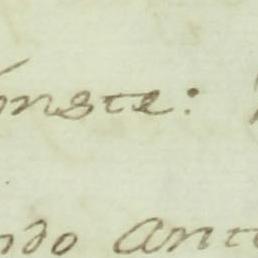 onste:
ndo Ante